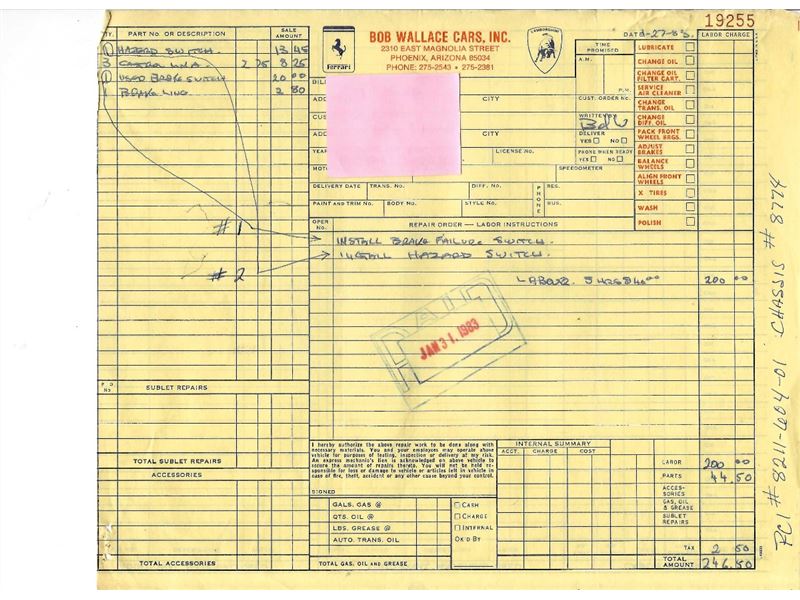 19255
QTY. PART No. OR DESCRIPTION SALE AMOUNT
1 HAZARD SWITCH. 13 45
3 CASTROL LMA 2 75 8 25
1 USED BRAKE SWITCH 20 00
1 BRAKE LING. 2 80
Ferrari
BOB WALLACE CARS, INC.
2310 EAST MAGNOLIA STREET
PHOENIX, ARIZONA 85034
PHONE: 275-2543 • 275-2381
LAMBORGHINI
DATE 1-27-83. LABOR CHARGE
TIME PROMISED
A.M.
P.M.
CUST. ORDER No.
WRITTEN BY
DELIVER
YES NO
PHONE WHEN READY
YES NO
LUBRICATE
CHANGE OIL
CHANGE OIL FILTER CART.
SERVICE AIR CLEANER
CHANGE TRANS. OIL
CHANGE DIFF. OIL
PACK FRONT WHEEL BRGS.
ADJUST BRAKES
BALANCE WHEELS
ALIGN FRONT WHEELS
X TIRES
WASH
POLISH
CITY
CITY
LICENSE No. SPEEDOMETER
DELIVERY DATE TRANS. No. DIFF. No. PHONE RES.
PAINT AND TRIM No. BODY No. STYLE No. BUS.
OPER No. REPAIR ORDER — LABOR INSTRUCTIONS
#1 INSTALL BRAKE FAILURE SWITCH.
#2 INSTALL HAZARD SWITCH.
LABOUR. 5 HRS @ 40 00 200 00
PAID
JAN 31. 1983
P.O. No. SUBLET REPAIRS
TOTAL SUBLET REPAIRS
ACCESSORIES
TOTAL ACCESSORIES
I hereby authorize the above repair work to be done along with
necessary materials. You and your employees may operate above
vehicle for purposes of testing, inspection or delivery at my risk.
An express mechanic's lien is acknowledged on above vehicle to
secure the amount of repairs thereto. You will not be held re-
sponsible for loss or damage to vehicle or articles left in vehicle in
case of fire, theft, accident or any other cause beyond your control.
SIGNED
INTERNAL SUMMARY
ACCT. CHARGE COST
GALS. GAS @
QTS. OIL @
LBS. GREASE @
AUTO. TRANS. OIL
TOTAL GAS, OIL AND GREASE
CASH
CHARGE
INTERNAL
OK'D BY
LABOR 200 00
PARTS 44.50
ACCES-SORIES
GAS, OIL & GREASE
SUBLET REPAIRS
TAX 2 50
TOTAL AMOUNT 246.50
PCI # 8211-604-01 CHASSIS # 8774